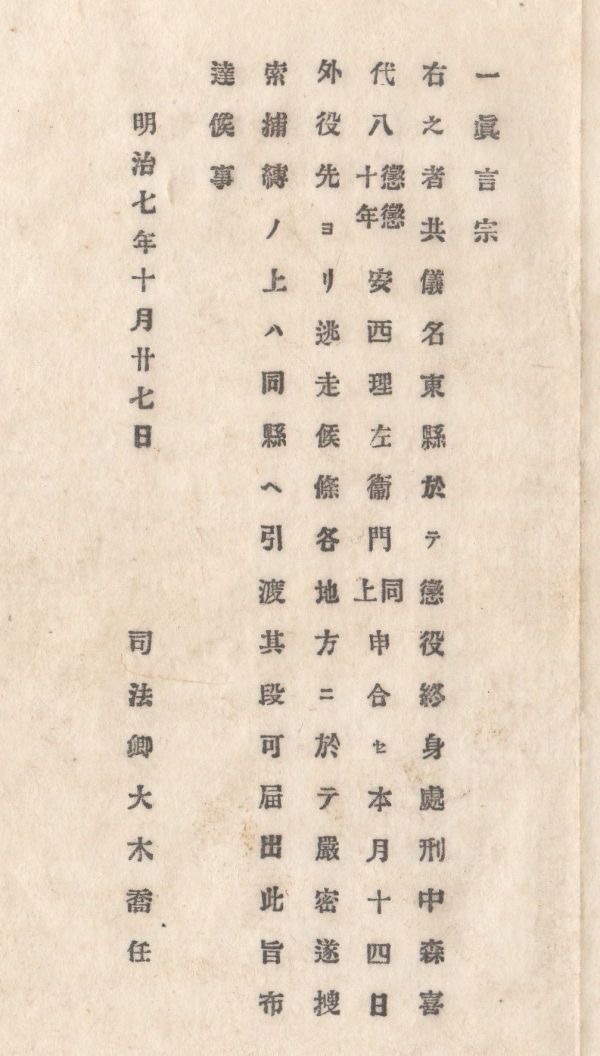 一眞言宗
右之者共儀名東縣於テ懲役終身處刑中森喜
代八懲懲十年安西理左衞門同上申合セ本月十四日
外役先ヨリ逃走候條各地方ニ於テ嚴密遂搜
索捕縳ノ上ハ同縣ヘ引渡其段可届出此旨布
達候事
明治七年十月廿七日
司法卿大木喬任